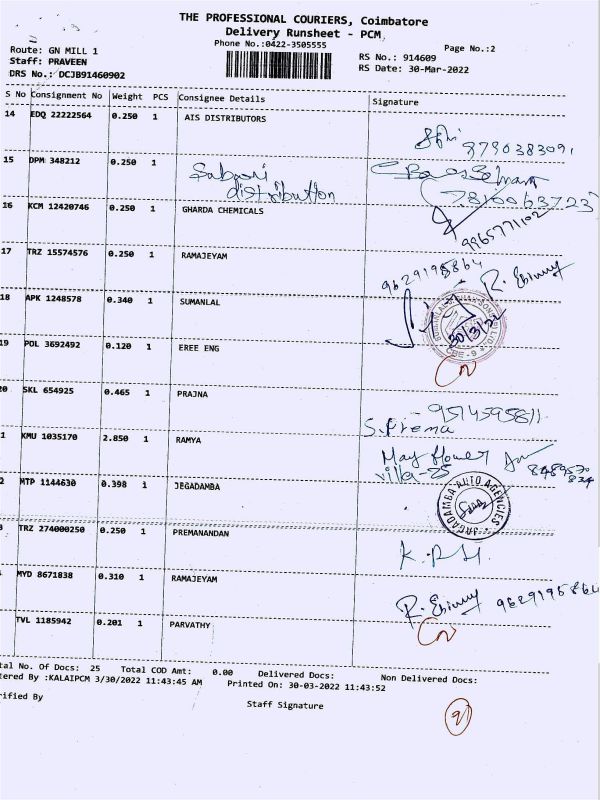 THE PROFESSIONAL COURIERS, Coimbatore
Delivery Runsheet - PCM
Phone No.:0422-3505555
Page No.:2
Route: GN MILL 1
Staff: PRAVEEN
DRS No.: DCJB91460902
RS No.: 914609
RS Date: 30-Mar-2022
S No Consignment No Weight PCS Consignee Details Signature
14 EDQ 22222564 0.250 1 AIS DISTRIBUTORS
9790383091
15 DPM 348212 0.250 1 Sabari distribution
7810063723
16 KCM 12420746 0.250 1 GHARDA CHEMICALS
9965771102
17 TRZ 15574576 0.250 1 RAMAJEYAM
9629195864 R.
18 APK 1248578 0.340 1 SUMANLAL
30/3/22
19 POL 3692492 0.120 1 EREE ENG
20 SKL 654925 0.465 1 PRAJNA
S. Prema 9514595811
1 KMU 1035170 2.850 1 RAMYA
May flower
villa-25
8489570
834
2 MTP 1144630 0.398 1 JEGADAMBA
JAGADAMBA AUTO AGENCIES
3 TRZ 274000250 0.250 1 PREMANANDAN
MYD 8671838 0.310 1 RAMAJEYAM
R. 9629195864
TVL 1185942 0.201 1 PARVATHY
tal No. Of Docs: 25 Total COD Amt: 0.00 Delivered Docs: Non Delivered Docs:
tered By :KALAIPCM 3/30/2022 11:43:45 AM Printed On: 30-03-2022 11:43:52
rified By
Staff Signature